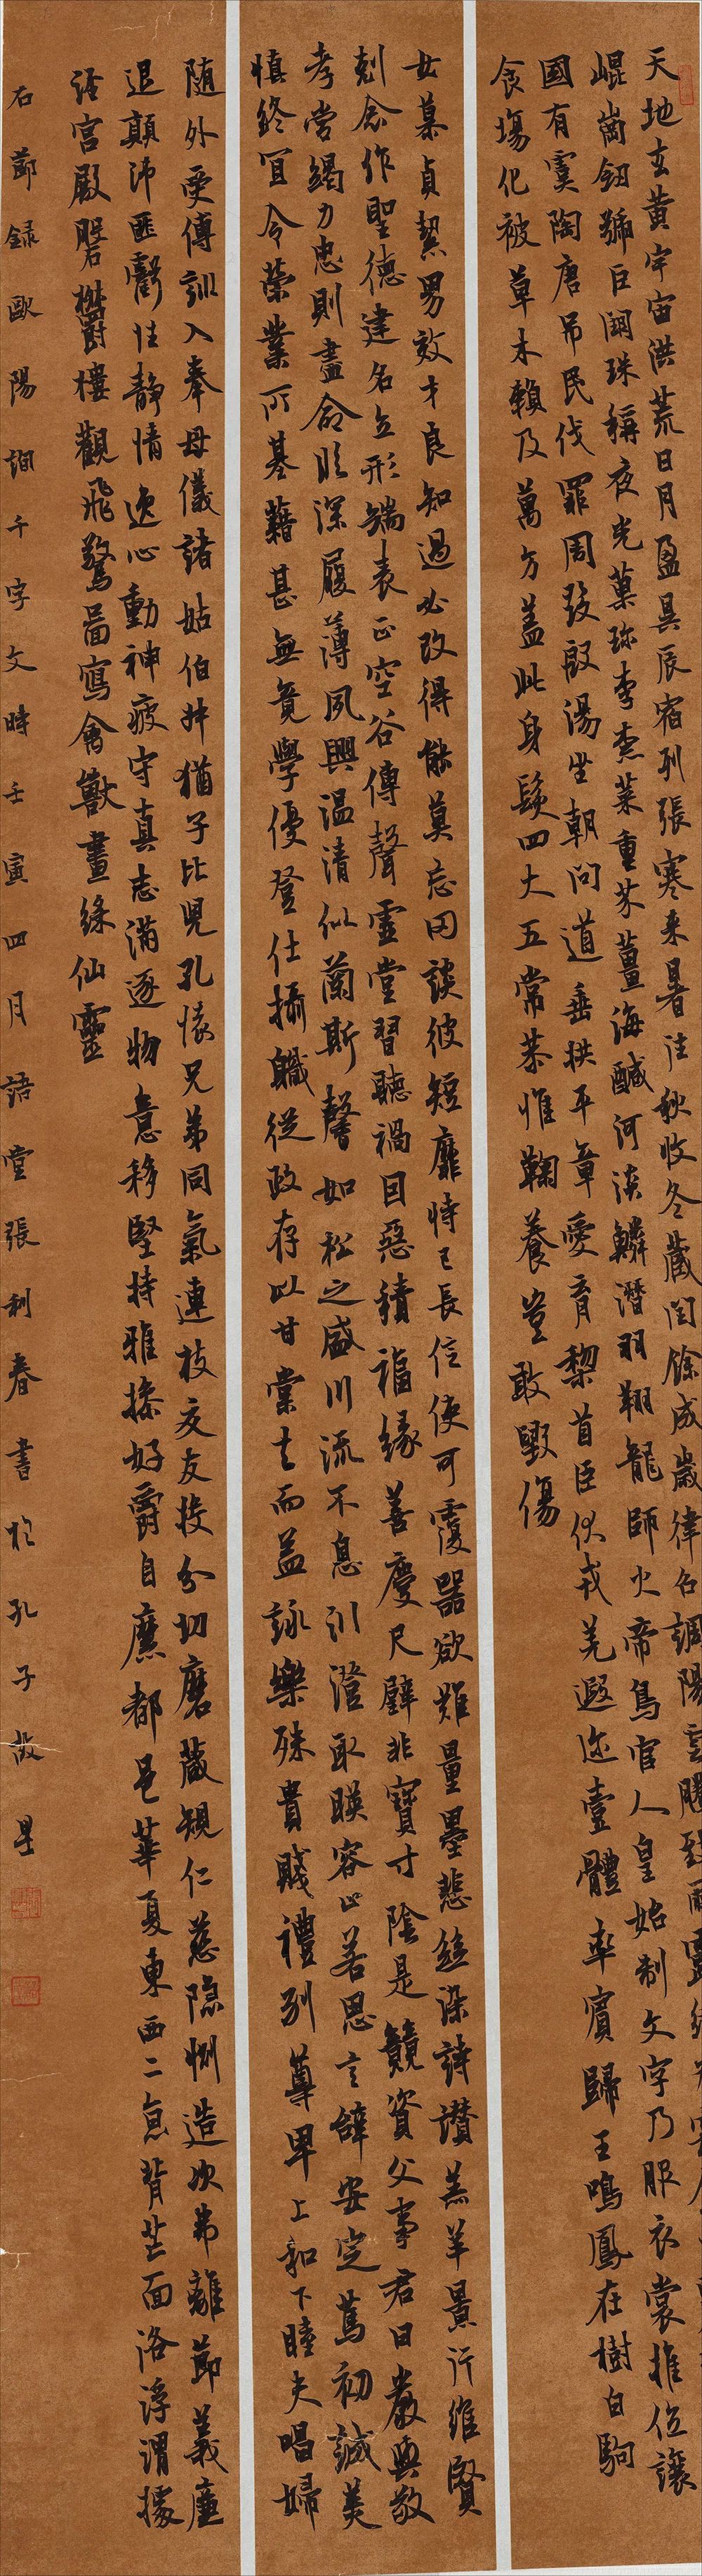 天地玄黃宇宙洪荒日月盈昃辰宿列張寒来暑往秋收冬藏閏餘成歲律呂調陽雲騰致雨露結為霜
崐崗劍號巨闕珠稱夜光菓珍李柰菜重芥薑海鹹河淡鱗潛羽翔龍師火帝鳥官人皇始制文字乃服衣裳推位讓
國有虞陶唐吊民伐罪周發殷湯坐朝問道垂拱平章愛育黎首臣伏戎羌遐迩壹體率賓歸王鳴鳳在樹白駒
食場化被草木賴及萬方盖此身髮四大五常恭惟鞠養豈敢毀傷
女慕貞絜男效才良知過必改得能莫忘罔談彼短靡恃己長信使可覆器欲難量墨悲絲染詩讚羔羊景行維賢
剋念作聖德建名立形端表正空谷傳聲虛堂習聽禍因惡積福緣善慶尺璧非寶寸陰是競資父事君曰嚴與敬
孝當竭力忠則盡命臨深履薄夙興温清似蘭斯馨如松之盛川流不息渊澄取暎容止若思言辭安定篤初誠美
慎終宜令榮業所基藉甚無竟學優登仕攝職從政存以甘棠去而益詠樂殊貴賤禮別尊卑上和下睦夫唱婦
随外受傅訓入奉母儀諸姑伯叔猶子比兒孔懷兄弟同氣連枝交友投分切磨葴規仁慈隱惻造次弗離節義廉
退顛沛匪虧性静情逸心動神疲守真志滿逐物意移堅持雅操好爵自縻都邑華夏東西二京背芒面洛浮渭據
涇宮殿磐鬱樓觀飛驚圖寫禽獸畫綵仙靈
右節録歐陽詢千字文時壬寅四月語堂張利春書於孔子故里